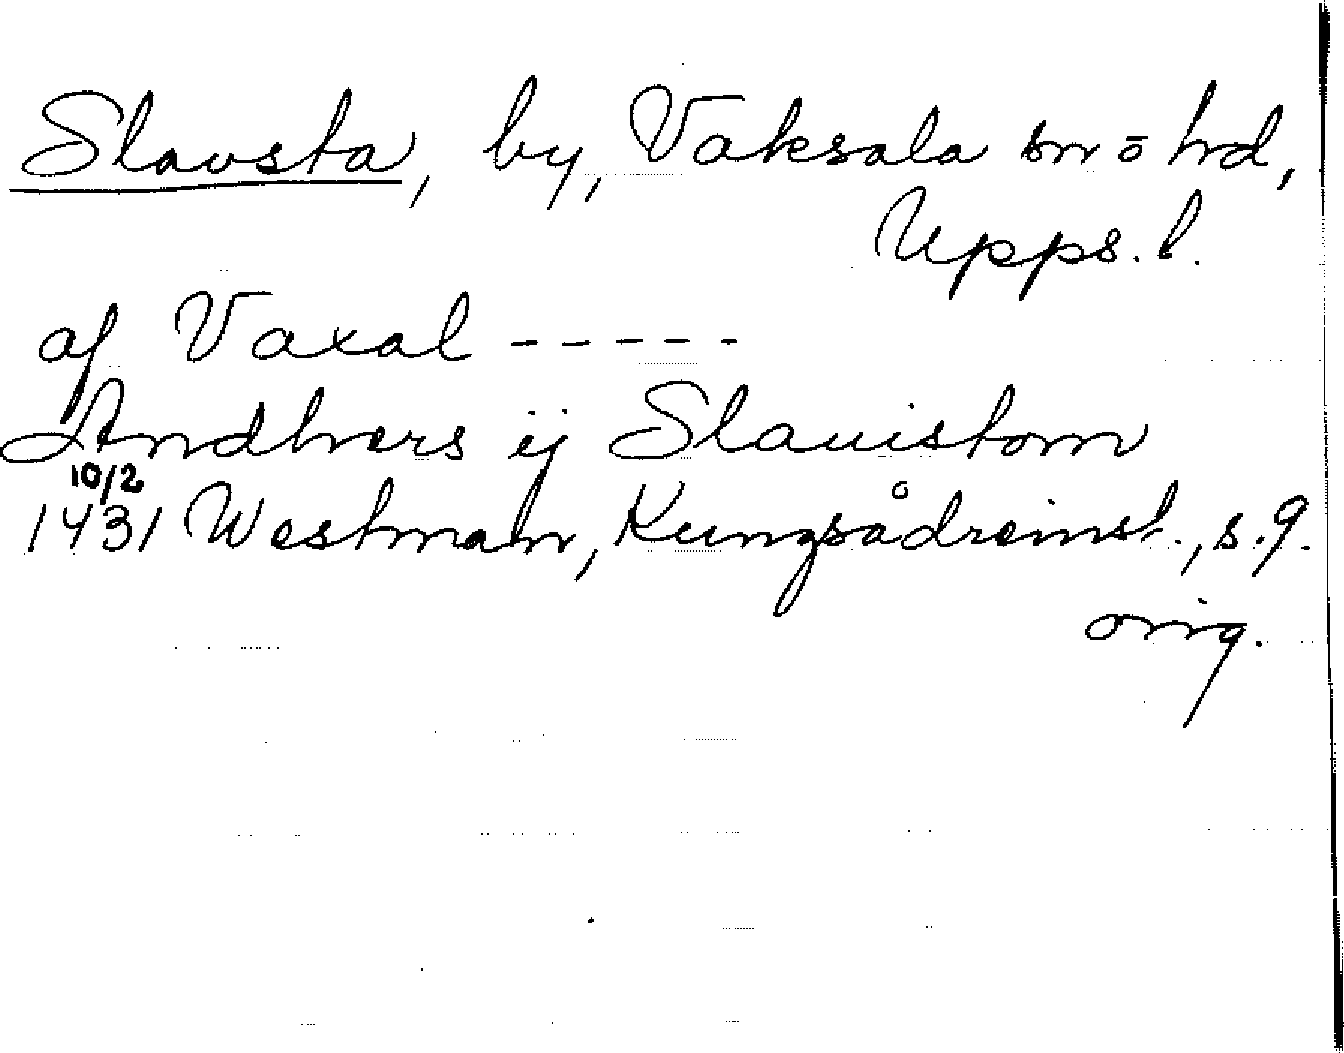 Slavsta, by, Vaksala sn o hd,
Upps. l.
af Vaxal -----
Andhers ij Slauistom
10/2
1431 Westman, Kungsådreinst., s. 9.
orig.